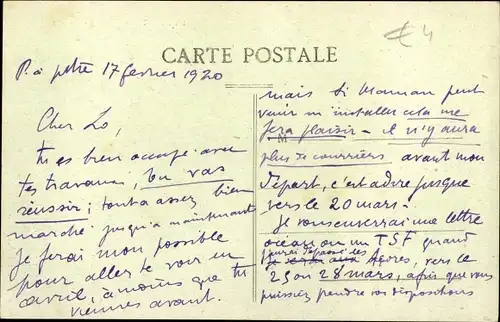 CARTE POSTALE
€ 4
P. à pitre 17 février 1920
Cher Lo,
tu es bien occupé avec
tes travaux, tu vas
réussir ; tout a assez bien
marché jusqu'à maintenant
je ferai mon possible
pour aller te voir en
avril, à moins que tu
viennes avant.
mais si Maman peut
venir m'installer cela me
fera plaisir – il n'y aura
plus de courriers avant mon
départ, c'est à dire jusque
vers le 20 mars –
Je vous enverrai une lettre
océan ou un TSF quand
j'aurai dépassé les
Açores, vers le
25 ou 28 mars, afin que vous
puissiez prendre vos dispositions